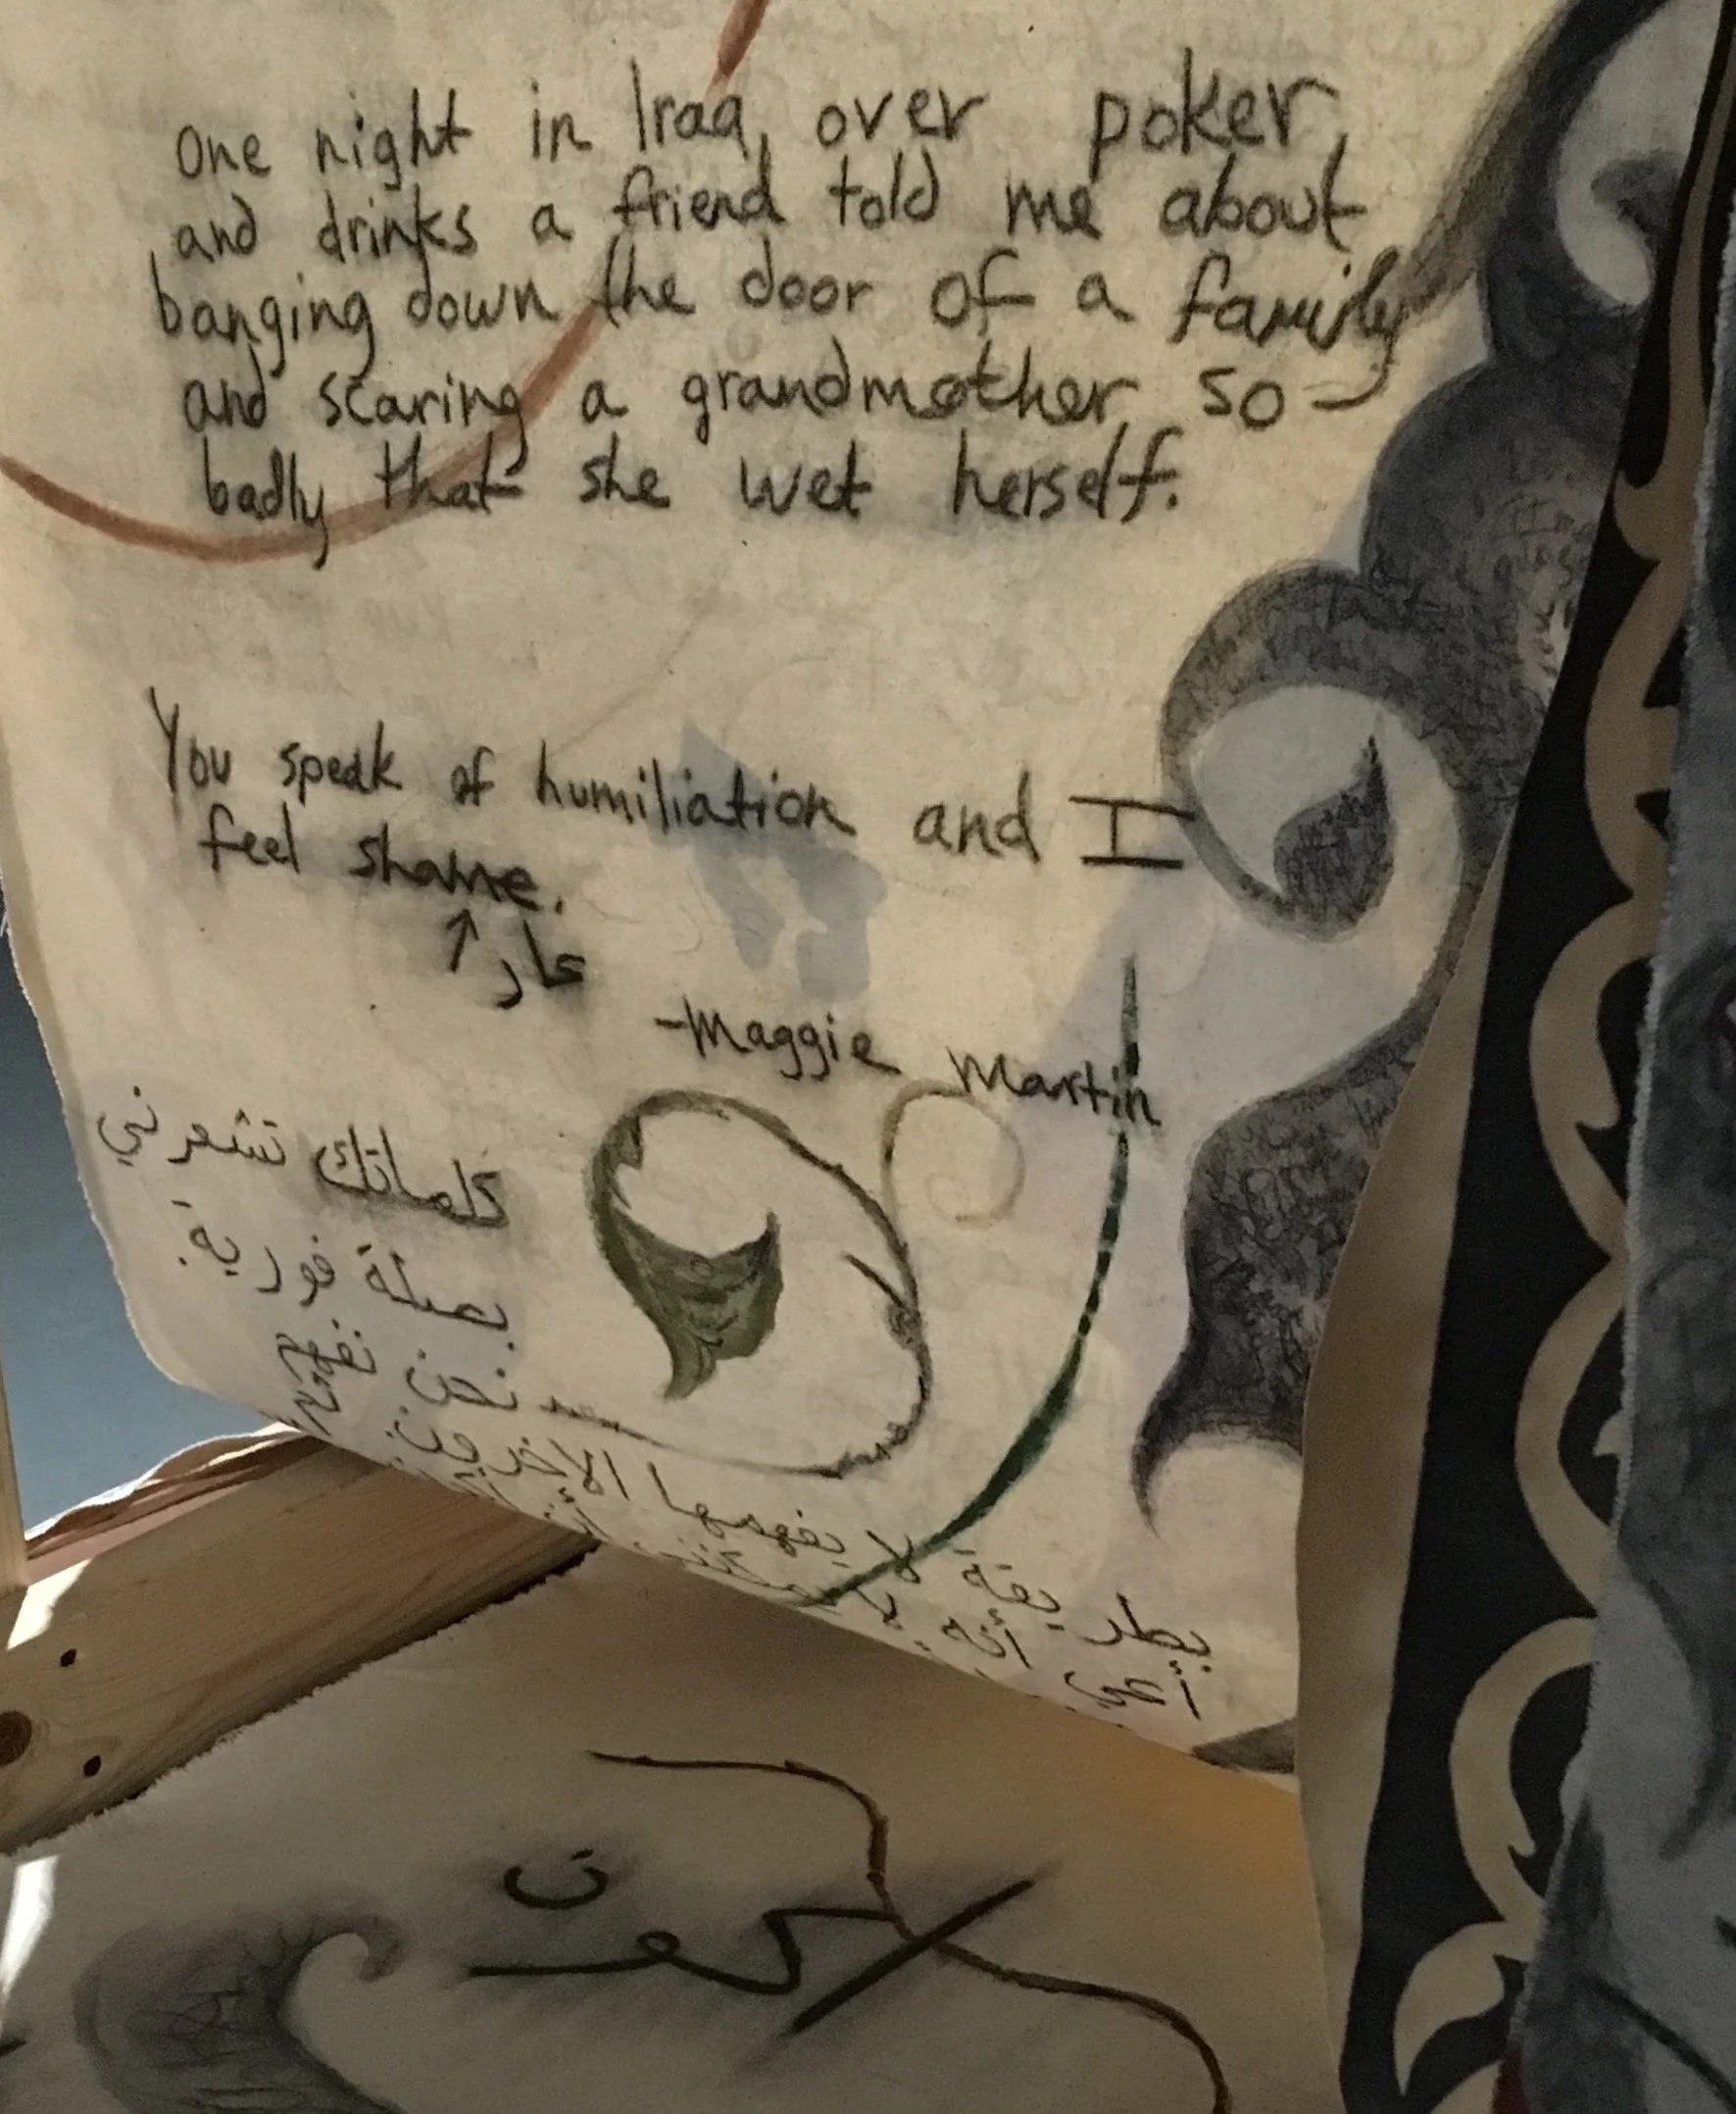 one night in Iraq, over poker,
and drinks a friend told me about
banging down the door of a family
and scaring a grandmother so
badly that she wet herself.
You speak of humiliation and I
feel shame.
↑ عار
-Maggie Martin
كلماتك تشعرني
بصلة فورية.
نحن نفهم
بطريقة لا يفهمها الآخرون.
أعي أنه